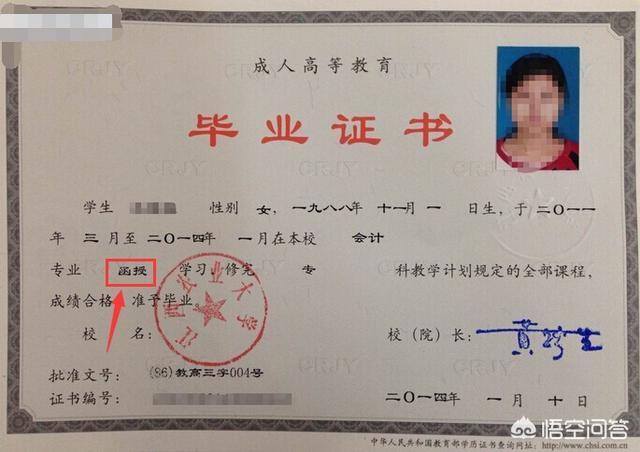 成人高等教育
毕业证书
学生 性别 女, 一九八八年 十一月 一 日生, 于 二〇一一
年 三 月至 二〇一四年 一月在本校 会计
专业 函授 学习, 修完 专 科教学计划规定的全部课程,
成绩合格 准予毕业
江西农业大学
校 名: 校(院)长:
批准文号: (86)教高三字004号
证书编号: 二〇一四年 一 月 十 日
中华人民共和国教育部学历证书查询网址: http://www.chsi.com.cn
悟空问答